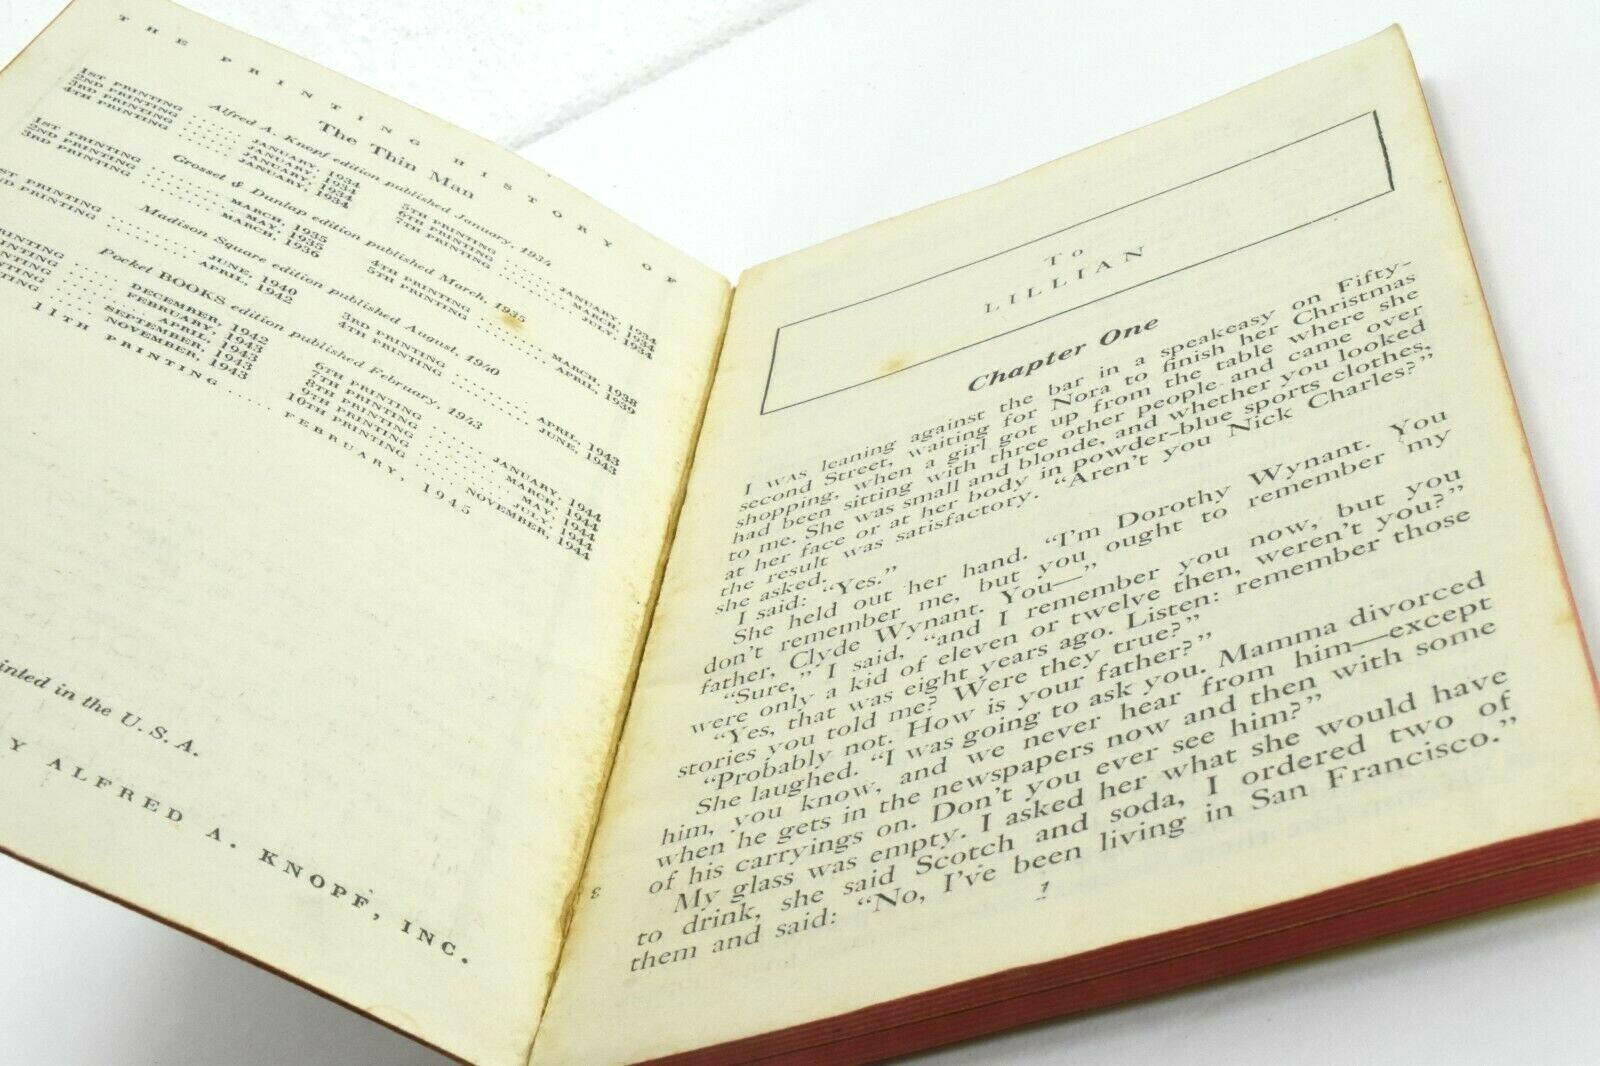 THE PRINTING HISTORY OF
The Thin Man
Alfred A. Knopf edition published January, 1934
1ST PRINTING ...... JANUARY, 1934
2ND PRINTING ...... JANUARY, 1934
3RD PRINTING ...... JANUARY, 1934
4TH PRINTING ...... JANUARY, 1934
5TH PRINTING ...... JANUARY, 1934
6TH PRINTING ...... MARCH, 1934
7TH PRINTING ...... JULY, 1934
Grosset & Dunlap edition published March, 1935
1ST PRINTING ...... MARCH, 1935
2ND PRINTING ...... MAY, 1935
3RD PRINTING ...... MARCH, 1936
4TH PRINTING ...... MARCH, 1938
5TH PRINTING ...... APRIL, 1939
Madison Square edition published August, 1940
ST PRINTING ...... JUNE, 1940
ND PRINTING ...... APRIL, 1942
3RD PRINTING ...... APRIL, 1943
4TH PRINTING ...... JUNE, 1943
Pocket BOOKS edition published February, 1943
PRINTING ...... DECEMBER, 1942
PRINTING ...... FEBRUARY, 1943
PRINTING ...... APRIL, 1943
PRINTING ...... SEPTEMBER, 1943
TING ...... NOVEMBER, 1943
6TH PRINTING ...... JANUARY, 1944
7TH PRINTING ...... MARCH, 1944
8TH PRINTING ...... MAY, 1944
9TH PRINTING ...... JULY, 1944
10TH PRINTING ...... NOVEMBER, 1944
11TH PRINTING ...... FEBRUARY, 1945
inted in the U. S. A.
Y ALFRED A. KNOPF, INC.
TO
LILLIAN
Chapter One
I was leaning against the bar in a speakeasy on Fifty-
second Street, waiting for Nora to finish her Christmas
shopping, when a girl got up from the table where she
had been sitting with three other people and came over
to me. She was small and blonde, and whether you looked
at her face or at her body in powder-blue sports clothes,
the result was satisfactory. “Aren’t you Nick Charles?”
she asked.
I said: “Yes.”
She held out her hand. “I’m Dorothy Wynant. You
don’t remember me, but you ought to remember my
father, Clyde Wynant. You—”
“Sure,” I said, “and I remember you now, but you
were only a kid of eleven or twelve then, weren’t you?”
“Yes, that was eight years ago. Listen: remember those
stories you told me? Were they true?”
“Probably not. How is your father?”
She laughed. “I was going to ask you. Mamma divorced
him, you know, and we never hear from him—except
when he gets in the newspapers now and then with some
of his carryings on. Don’t you ever see him?”
My glass was empty. I asked her what she would have
to drink, she said Scotch and soda, I ordered two of
them and said: “No, I’ve been living in San Francisco.”
1
3